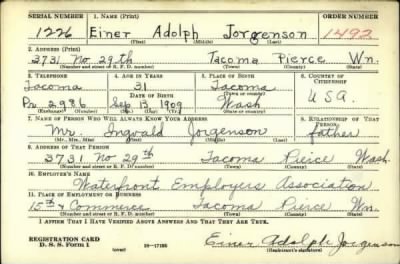 SERIAL NUMBER 1. NAME (Print) ORDER NUMBER
1226 Einer Adolph Jorgenson 1492
(First) (Middle) (Last)
2. ADDRESS (Print)
3731 No. 29th Tacoma Pierce Wn.
(Number and street or R. F. D. number) (Town) (County) (State)
3. TELEPHONE 4. AGE IN YEARS 5. PLACE OF BIRTH 6. COUNTRY OF CITIZENSHIP
Tacoma 31 Tacoma
DATE OF BIRTH (Town or county)
Pr. 2986 Sep 13 1909 Wash U.S.A.
(Exchange) (Number) (Mo.) (Day) (Yr.) (State or country)
7. NAME OF PERSON WHO WILL ALWAYS KNOW YOUR ADDRESS 8. RELATIONSHIP OF THAT PERSON
Mr. Ingvald Jorgenson father
(Mr., Mrs., Miss) (First) (Middle) (Last)
9. ADDRESS OF THAT PERSON
3731 No 29th Tacoma Pierce Wash.
(Number and street or R. F. D. number) (Town) (County) (State)
10. EMPLOYER'S NAME
Waterfront Employers Association
11. PLACE OF EMPLOYMENT OR BUSINESS
15th & Commerce Tacoma Pierce Wn.
(Number and street or R. F. D. number) (Town) (County) (State)
I AFFIRM THAT I HAVE VERIFIED ABOVE ANSWERS AND THAT THEY ARE TRUE.
REGISTRATION CARD
D. S. S. Form 1 (over) 16-17105 Einer Adolph Jorgenson
(Registrant's signature)